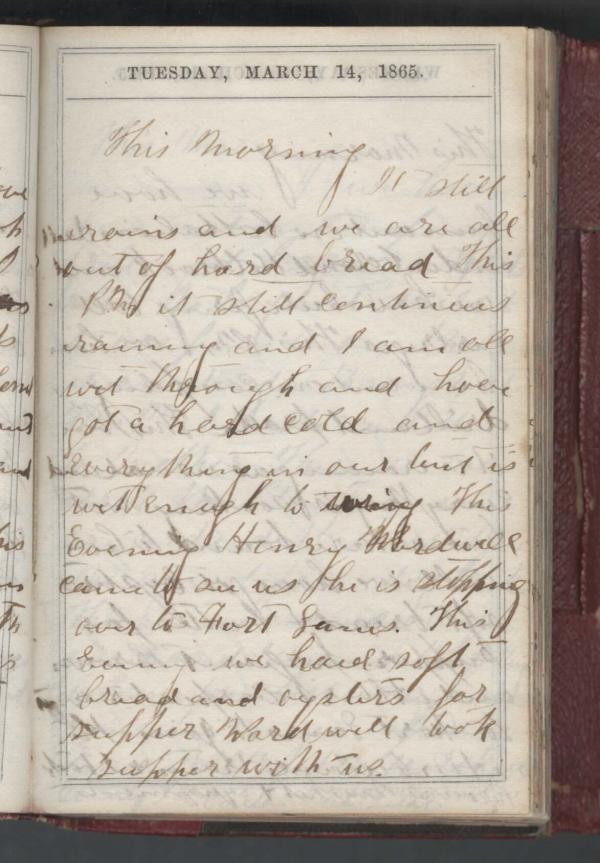 TUESDAY, MARCH 14, 1865.
This Morning
It still
rains and we are all
out of hard bread This
P.M. it still continues
raining and I am all
wet through and have
got a hard cold and
Everything in our hut is
wet enough to wring This
Evening Henry Wardwell
came to see us he is stopping
over to Fort This
Evening we had soft
bread and oysters for
supper Wardwell took
supper with us.